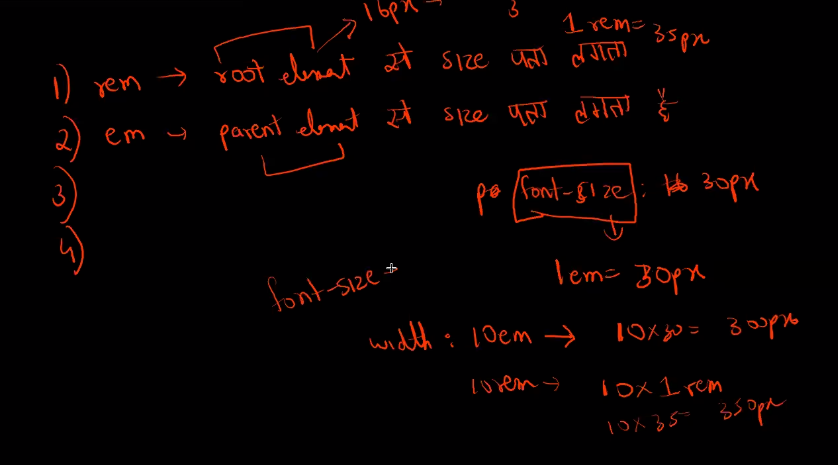 16px → 3
1 rem = 35px
1) rem → root element से size पता लगता
2) em → parent element से size पता लगता है
3)
font-size: 30px
4)
1em = 30px
font-size
width: 10em → 10×30 = 300px
10rem → 10×1rem
10×35 = 350px